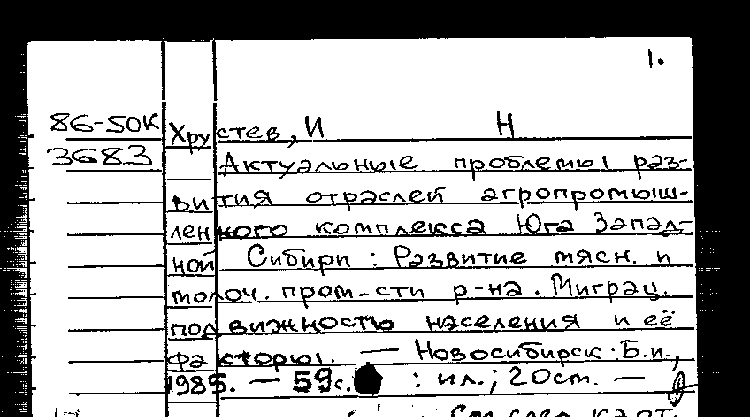 1.
86-50К Хрустев, И Н
3683 Актуальные проблемы раз-
вития отраслей агропромыш-
ленного комплекса Юга Запад-
ной Сибири : Развитие мясн. и
молоч. пром-сти р-на. Миграц.
подвижность населения и её
факторы. — Новосибирск : Б.и.,
1985. — 59с. : ил.; 20см. —